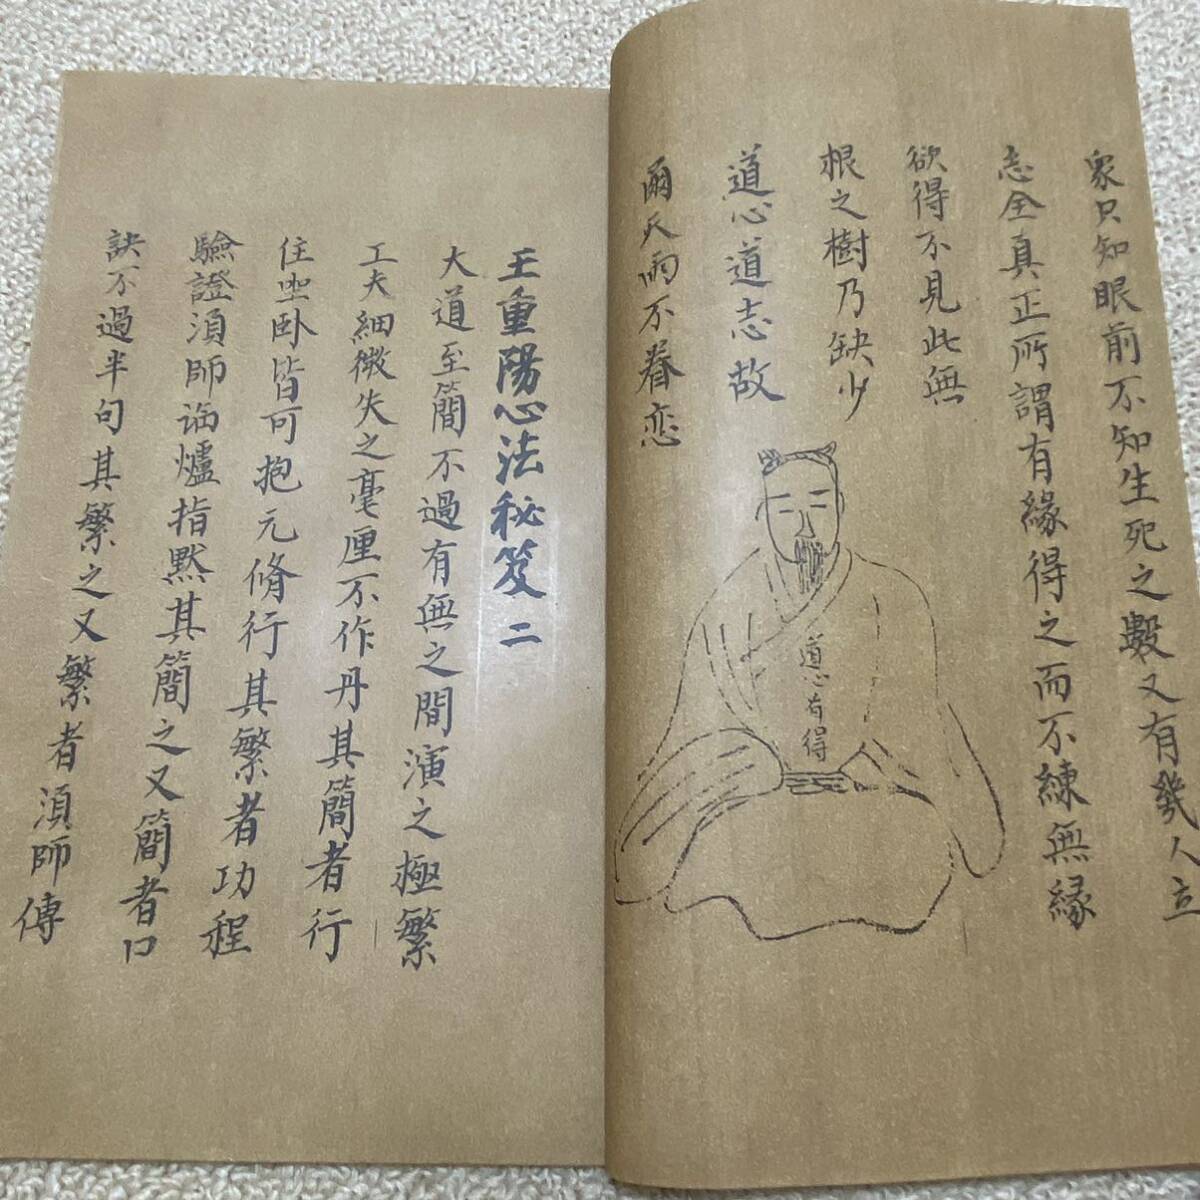 衆只知眼前不知生死之數又有幾人立
志全真正所謂有緣得之而不練無緣
欲得不見此無
根之樹乃缺少
道心道志故
爾天雨不眷恋
道心有得
王重陽心法秘笈二
大道至簡不過有無之間演之極繁
工夫細微失之毫厘不作丹其簡者行
住坐卧皆可抱元脩行其繁者功程
驗證須師爐指默其簡之又簡者口
訣不過半句其繁之又繁者須師傳